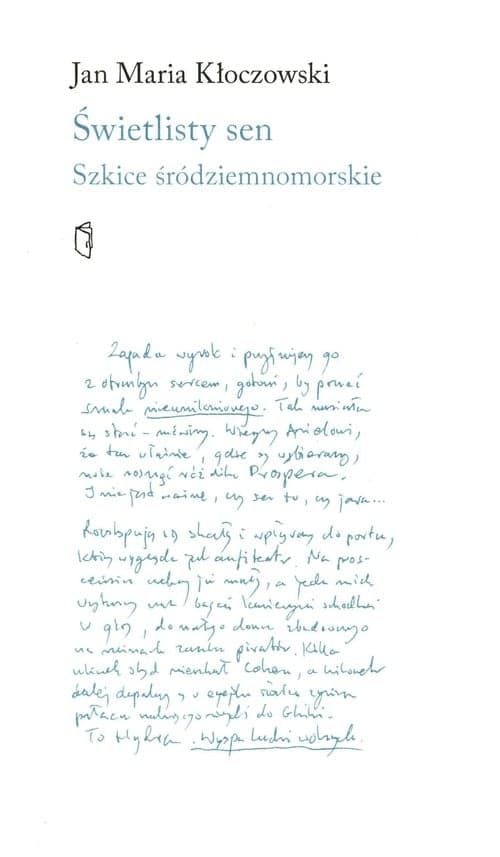 Jan Maria Kłoczowski
Świetlisty sen
Szkice śródziemnomorskie
Zapada wyrok i przyjmujemy go
z otwartym sercem, gotowi, by poznać
smak nieuniknionego. Tak musiało
się stać – mówimy. Wierzymy Aniołowi,
że tam właśnie, gdzie się wybieramy,
może nosi różdżka Prospera.
I nie jest ważne, czy sen to, czy jawa...
Rozstępują się skały i wpływamy do portu,
który wygląda jak amfiteatr. Na
już mniej, a jeden z nich
nas kamiennymi schodkami
w górę, do małego domu zbudowanego
na ruinach zamku piratów. Kilka
uliczek stąd mieszkał Cohen, a kilometr
dalej w ogródku
pałacu należącego niegdyś do Ghiki.
To Hydra. Wyspa ludzi wolnych.